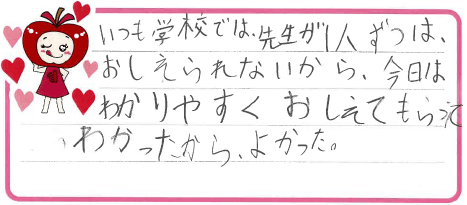 いつも学校では、先生が1人ずつは、
おしえられないから、今日は
わかりやすくおしえてもらって
わかったから、よかった。